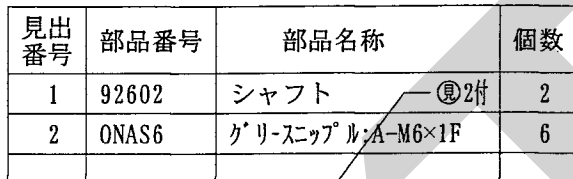 見出番号 部品番号 部品名称 個数
1 92602 シャフト ㊩2付 2
2 ONAS6 グリースニップル:A-M6×1F 6